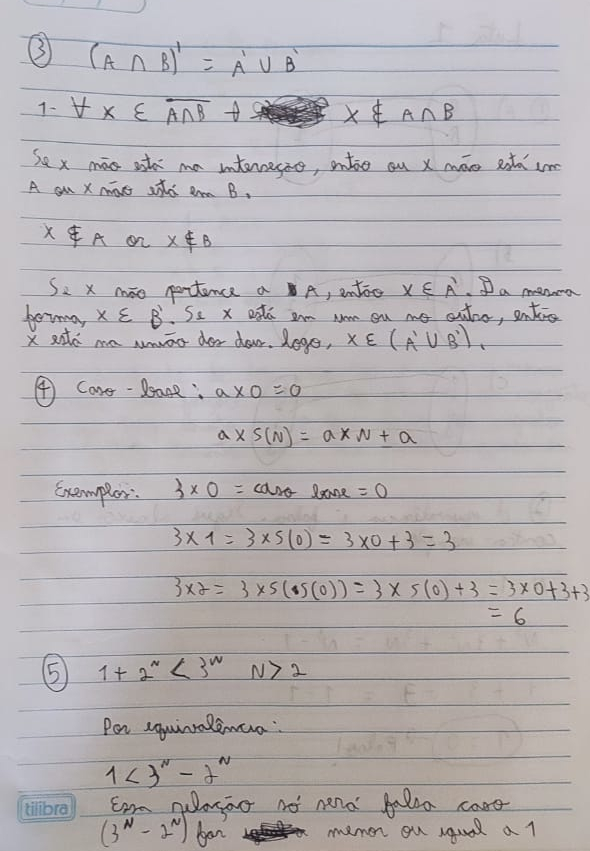 ③ (A ∩ B)' = A' ∪ B'
1- ∀ x ∈ A∩B → x ∉ A∩B
Se x não está na interseção, então ou x não está em
A ou x não está em B.
x ∉ A or x ∉ B
Se x não pertence a A, então x ∈ A'. Da mesma
forma, x ∈ B'. Se x está em um ou no outro, então
x está na união dos dois. logo, x ∈ (A' ∪ B').
④ Caso-base: a x 0 = 0
a x S(N) = a x N + a
Exemplos: 3 x 0 = caso base = 0
3 x 1 = 3 x S(0) = 3 x 0 + 3 = 3
3x2 = 3 x S(S(0)) = 3 x S(0) + 3 = 3x0+3+3
= 6
⑤ 1 + 2^N < 3^N N > 2
Por equivalência:
1 < 3^N - 2^N
Essa relação só será falsa caso
tilibra
(3^N - 2^N) for menor ou igual a 1